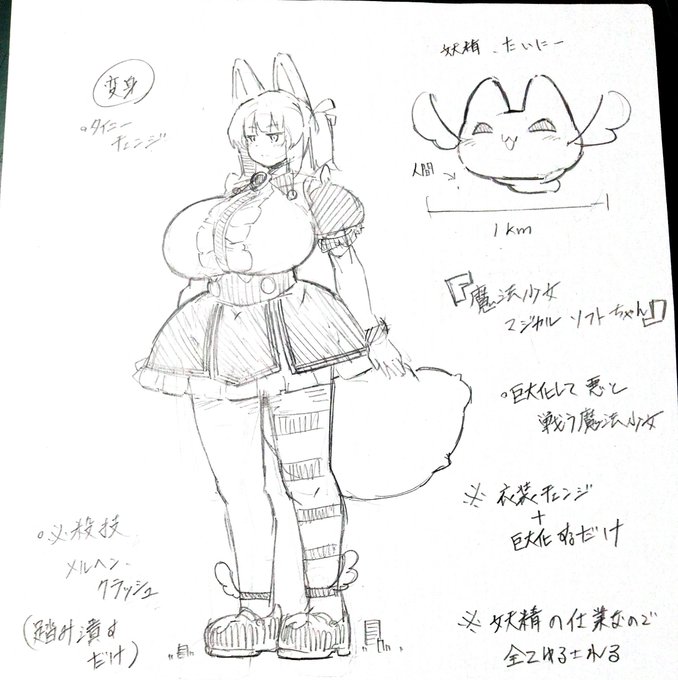 変身
。タイニー
チェンジ
妖精 たいにー
人間
1km
『魔法少女
マジカル ソフトちゃん』
。巨大化して 悪と
戦う魔法少女
※ 衣装チェンジ
+
巨大化するだけ
※ 妖精の仕業なので
全てゆるされる
。必殺技
メルヘン・
クラッシュ
(踏み潰す
だけ)